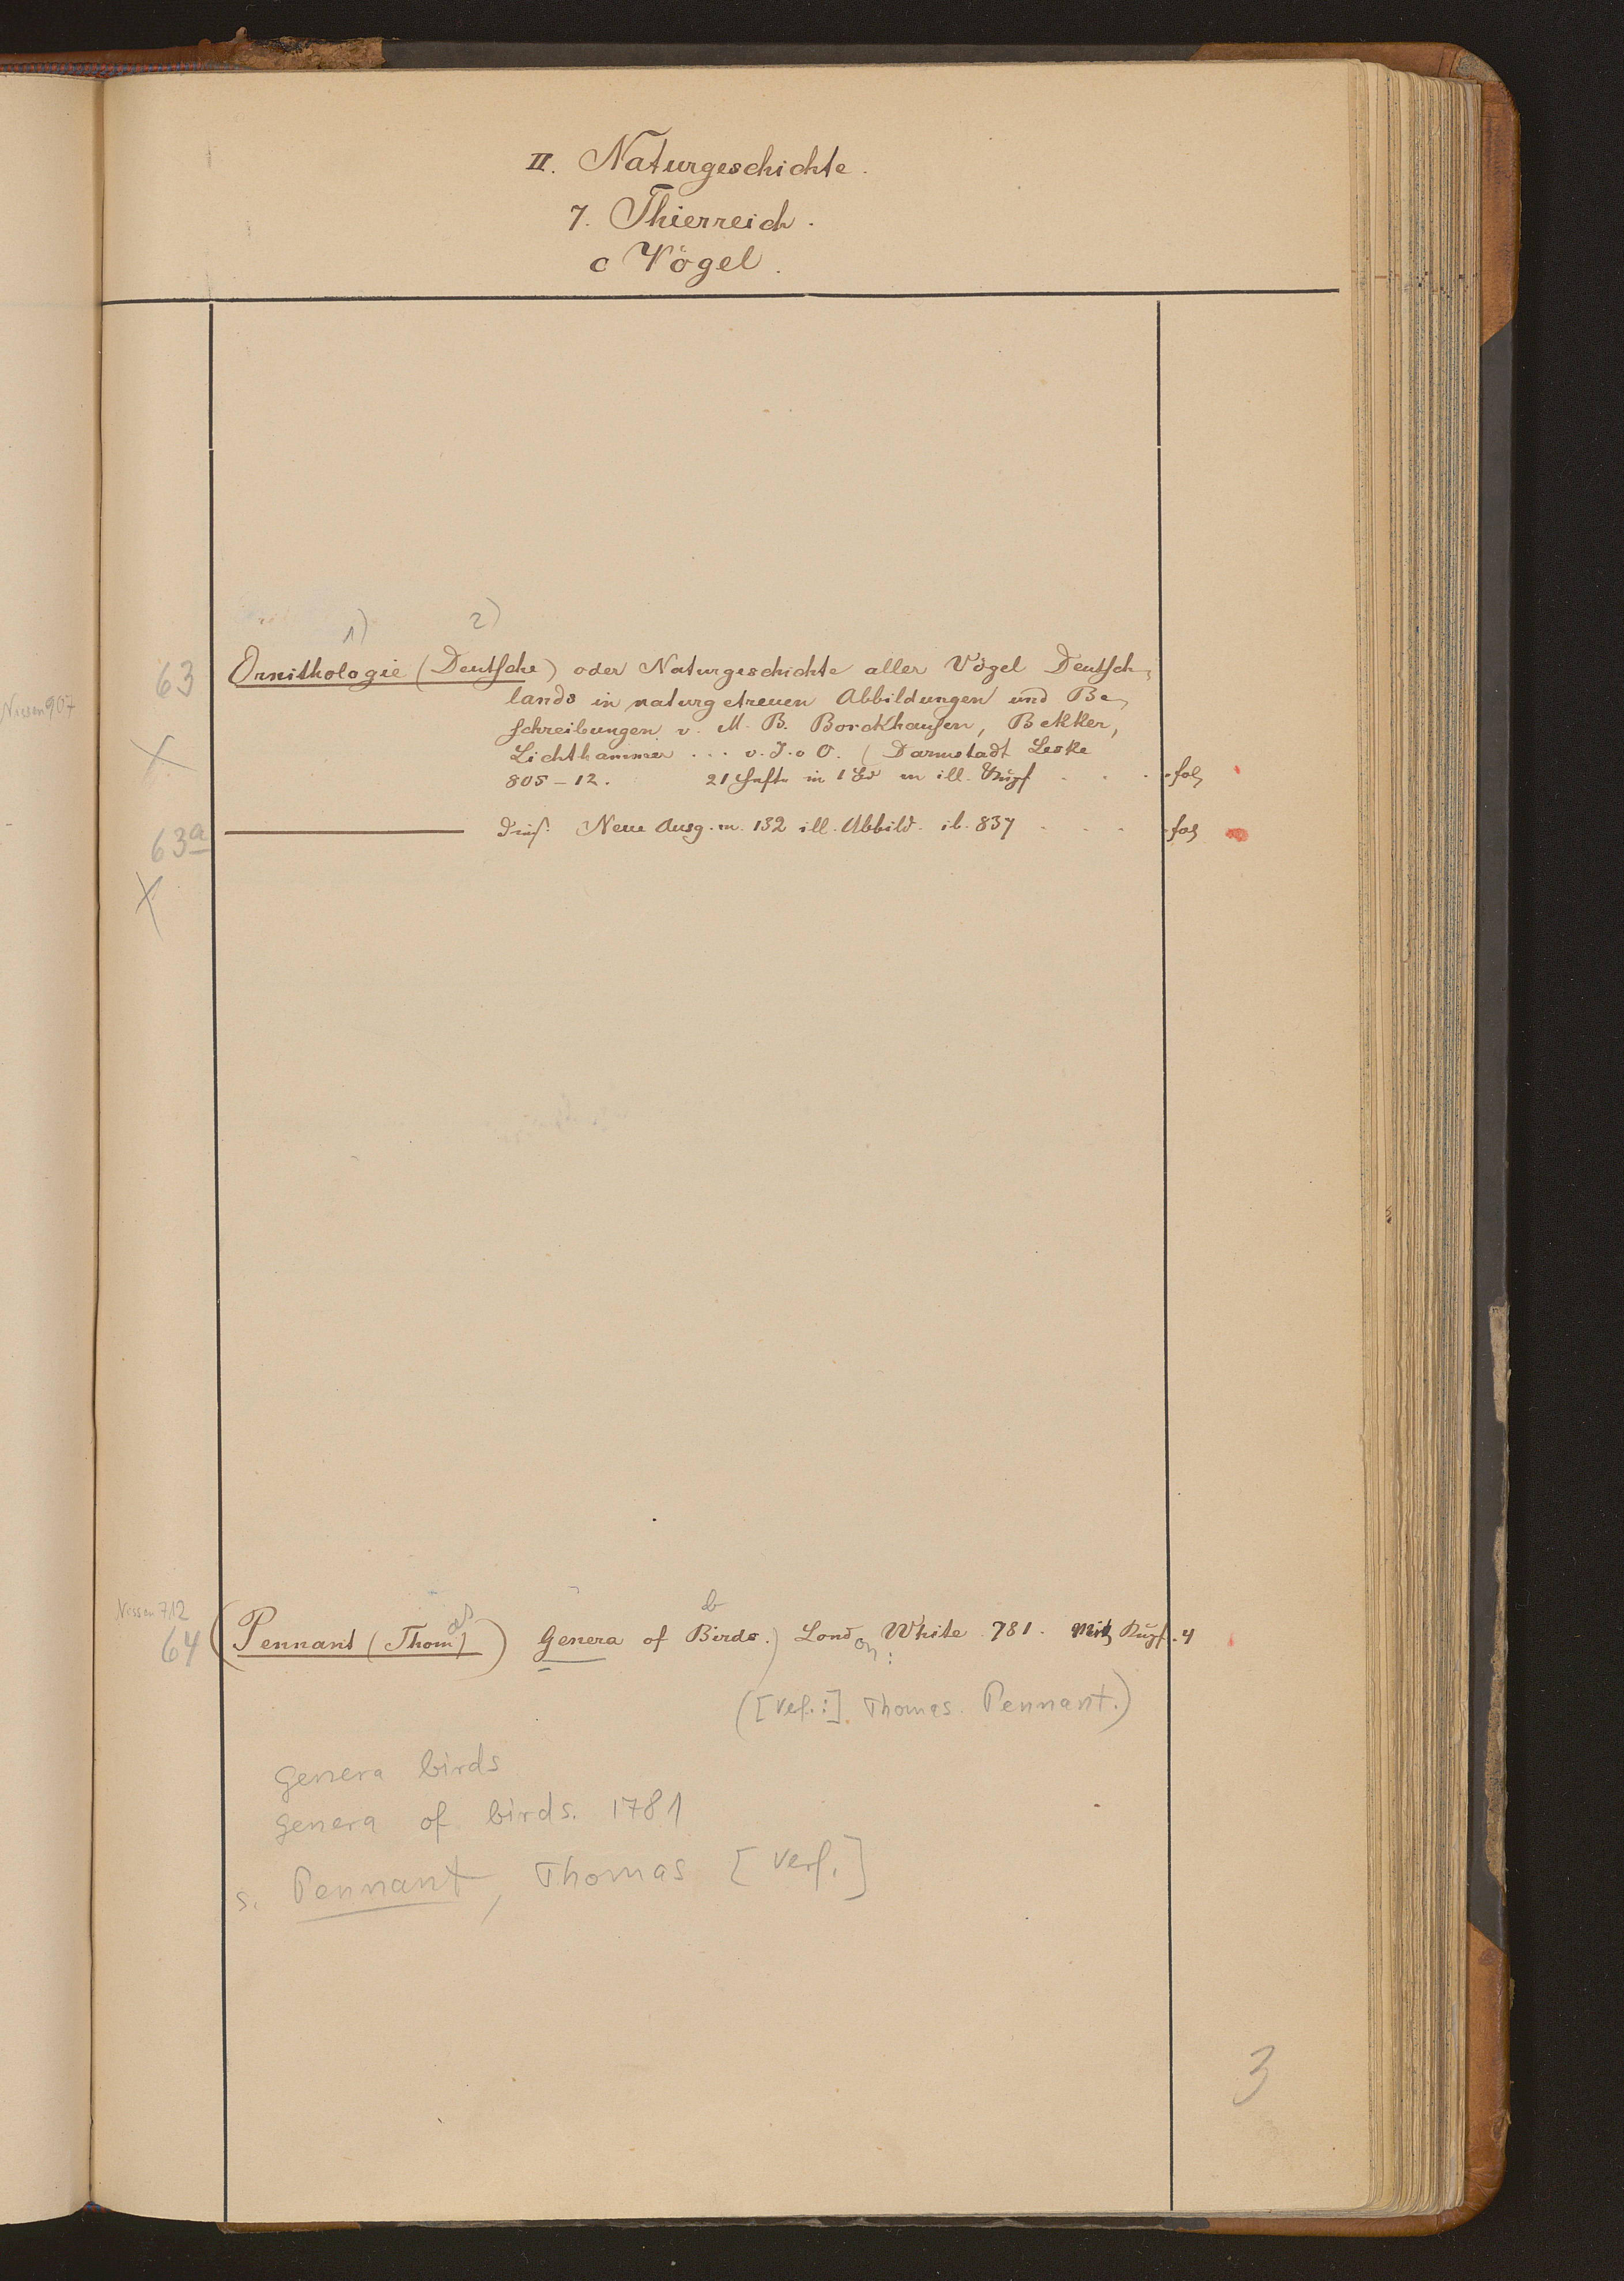 II. Naturgeschichte.
7. Thierreich.
c Vögel.
1) 2)
63 Ornithologie (Deutsche) oder Naturgeschichte aller Vögel Deutsch-
Nissen 907
lands in naturgetreuen Abbildungen und Be-
schreibungen v. M. B. Borckhausen, Bekker,
Lichthammer ... v. J. o O. (Darmstadt Leske
805-12. 21 Hefte in 1 Bd m ill. Kupf . . . fol
63a Neue Ausg. m. 132 ill. Abbild. ib. 837 . . . fol
X
X
Nissen 712
b
64 (Pennant (Thomas)) Genera of Birds.) London: White 781. Mit Kupf. 4
([Verf.:] Thomas Pennant.)
Genera birds
genera of birds. 1781
s. Pennant, Thomas [Verf.]
3